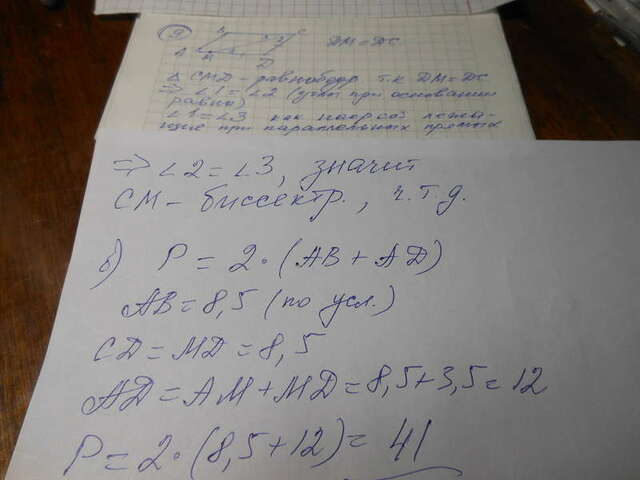 9 B C DM = DC
A M D
Δ CMD - равнобедр т.к DM = DC
⇒ ∠1 = ∠2 (углы при основании
равны)
∠1 = ∠3 как накрест лежа-
щие при параллельных прямых
⇒ ∠2 = ∠3, значит
СМ - биссектр., ч.т.д.
б) P = 2 · (AB + AD)
AB = 8,5 (по усл.)
CD = MD = 8,5
AD = AM + MD = 8,5 + 3,5 = 12
P = 2 · (8,5 + 12) = 41